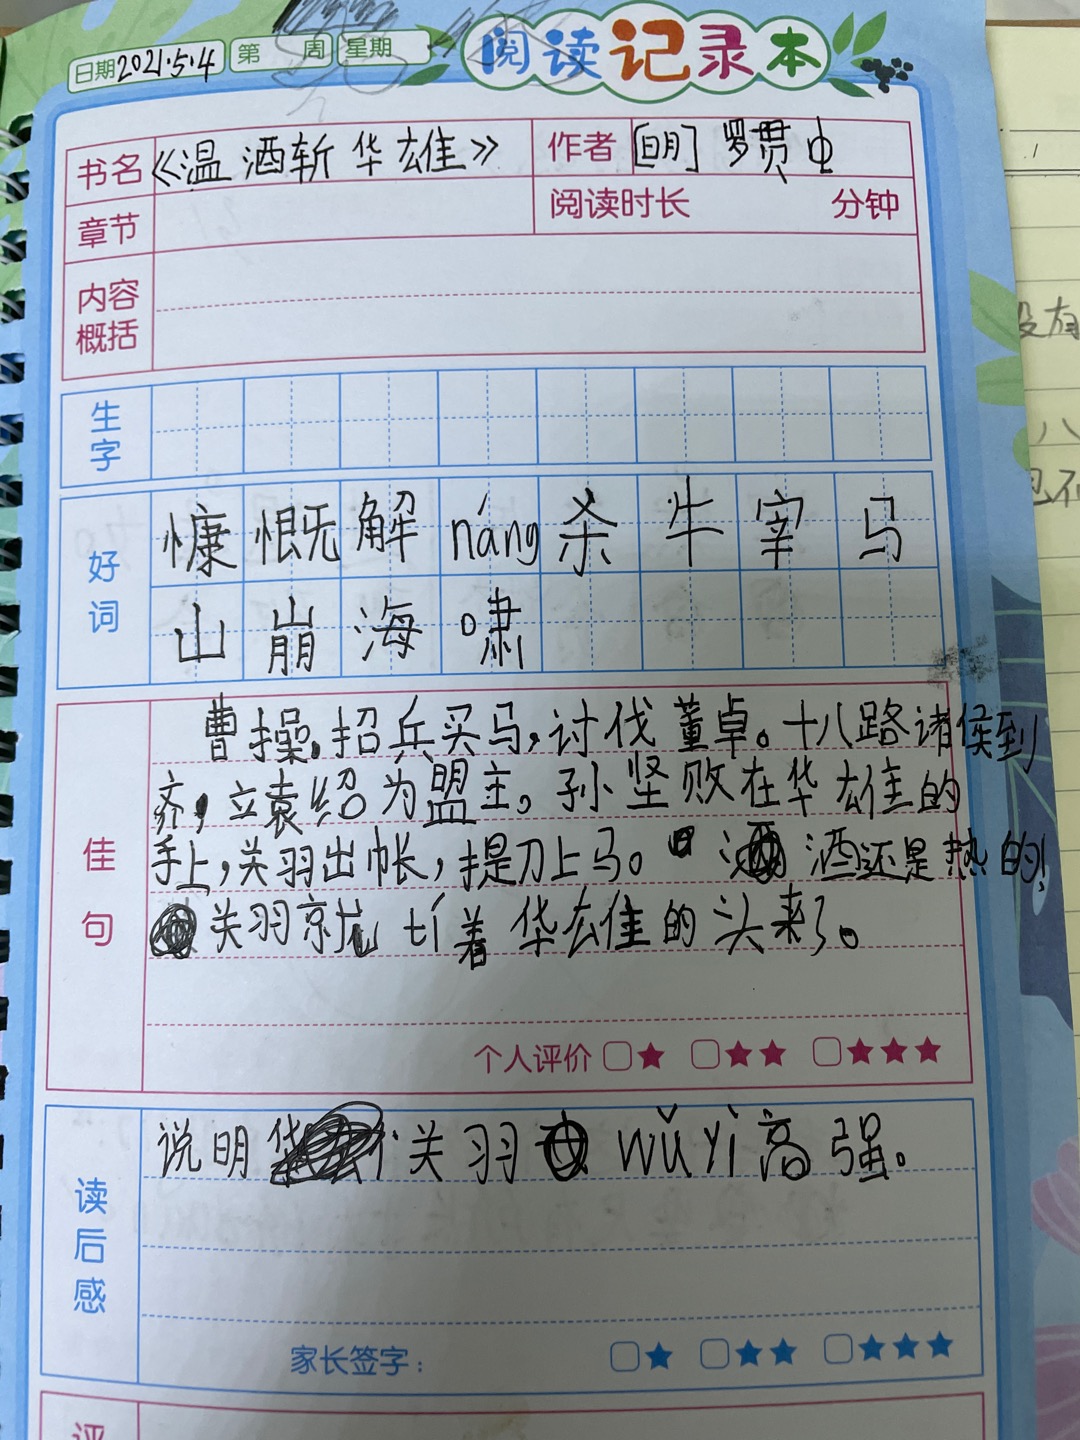 日期2021.5.4 第 周 星期 阅读记录本
书名《温酒斩华雄》 作者[明]罗贯中
章节 阅读时长 分钟
内容
概括
生
字
好
词
慷慨解náng杀牛宰马
山崩海啸
佳
句
曹操。招兵买马,讨伐董卓。十八路诸侯到
齐,立袁绍为盟主。孙坚败在华雄的
手上,关羽出帐,提刀上马。酒还是热的!
关羽就tí着华雄的头来了。
个人评价 ★ ★★ ★★★
读
后
感
说明关羽wǔyì高强。
家长签字: ★ ★★ ★★★
评
没有
八